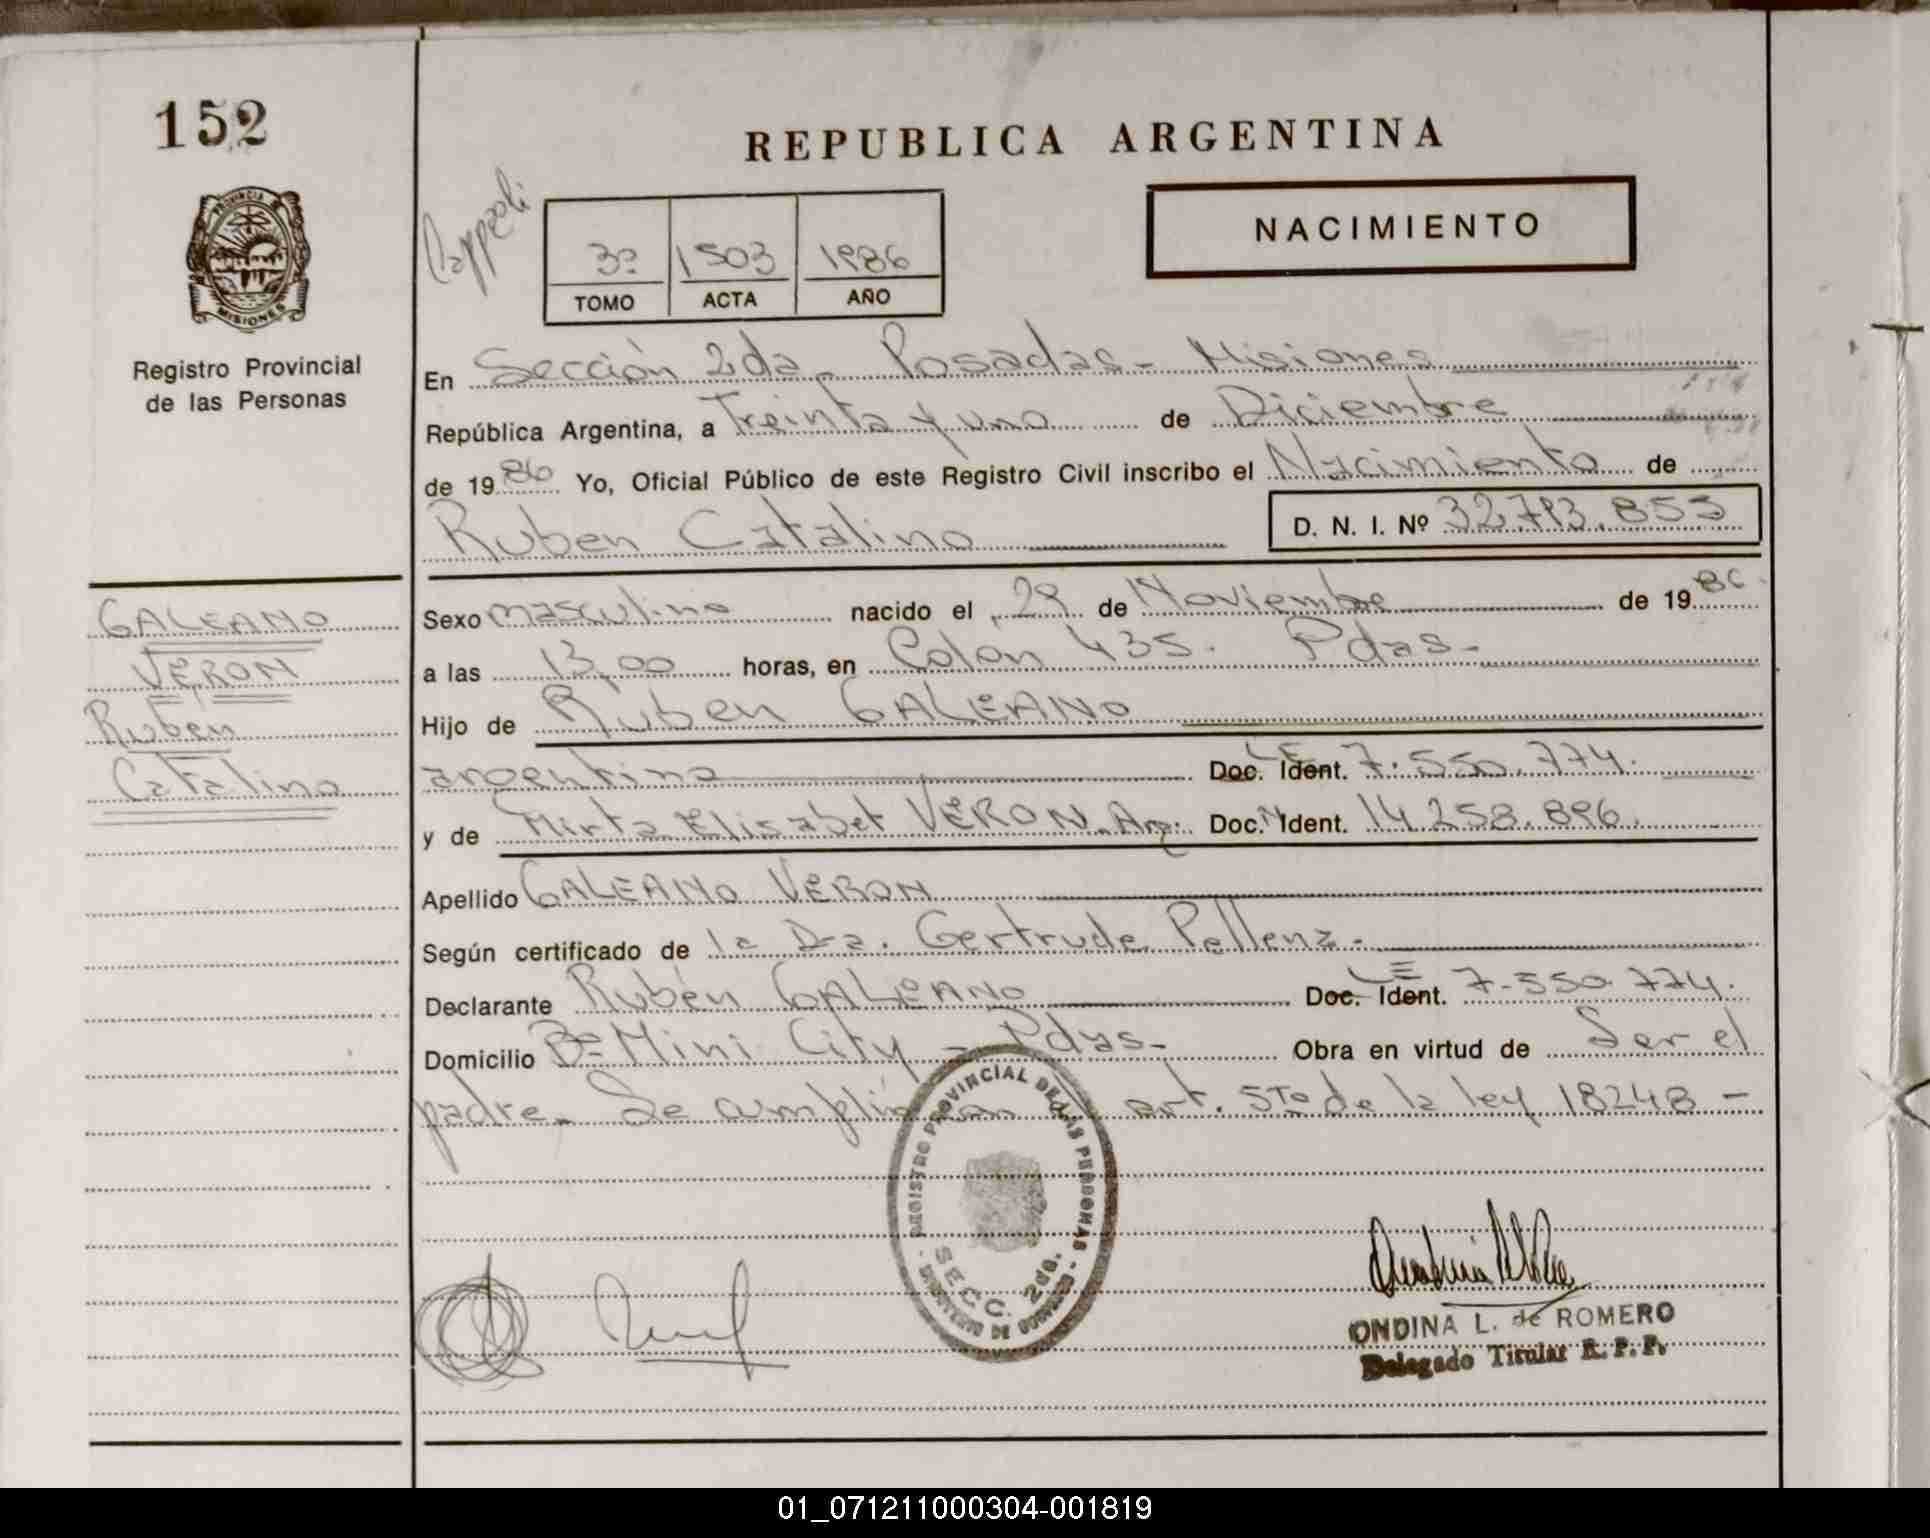 152
REPUBLICA ARGENTINA
PROVINCIA DE
MISIONES
3º 1503 1986
TOMO ACTA AÑO
NACIMIENTO
Registro Provincial
de las Personas
En Sección 2da. Posadas - Misiones
República Argentina, a Treinta y uno de Diciembre
de 1986 Yo, Oficial Público de este Registro Civil inscribo el Nacimiento de
Ruben Catalino D. N. I. Nº 32.793.853
GALEANO
VERON
Ruben
Catalino
Sexo masculino nacido el 29 de Noviembre de 1986
a las 13,00 horas, en Colón 435. Pdas.
Hijo de Ruben GALEANO
argentino Doc. Ident. LE 7.550.774.
y de Mirta Elisabet VERON. Arg. Doc. Ident. 14.258.896.
Apellido GALEANO VERON
Según certificado de la Dra. Gertrude Pellenz.
Declarante Rubén GALEANO Doc. Ident. LE 7.550.774.
Domicilio Bº Mini City - Pdas- Obra en virtud de Ser el
padre. Se art. 5to de la ley 18248 -
REGISTRO PROVINCIAL DE LAS PERSONAS
SECC. 2da.
ONDINA L. de ROMERO
Delegado Titular R. P. P.
01_071211000304-001819